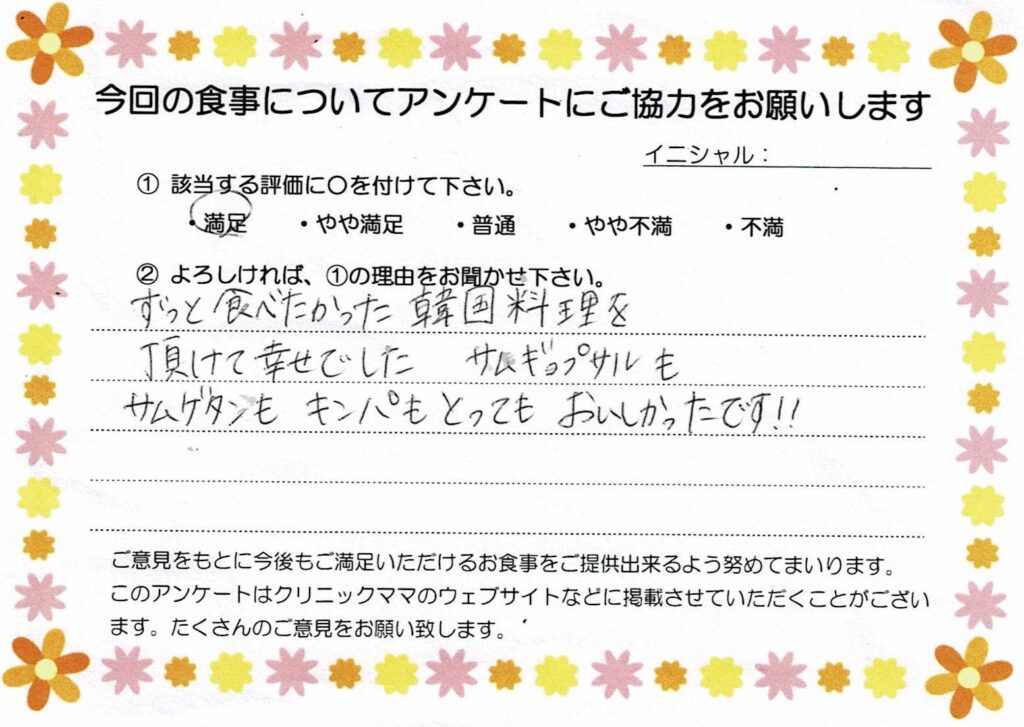 今回の食事についてアンケートにご協力をお願いします
イニシャル：
① 該当する評価に〇を付けて下さい。
・満足 ・やや満足 ・普通 ・やや不満 ・不満
② よろしければ、①の理由をお聞かせ下さい。
ずっと食べたかった韓国料理を
頂けて幸せでした サムギョプサルも
サムゲタンも キンパもとっても おいしかったです!!
ご意見をもとに今後もご満足いただけるお食事をご提供出来るよう努めてまいります。
このアンケートはクリニックママのウェブサイトなどに掲載させていただくことがござい
ます。たくさんのご意見をお願い致します。